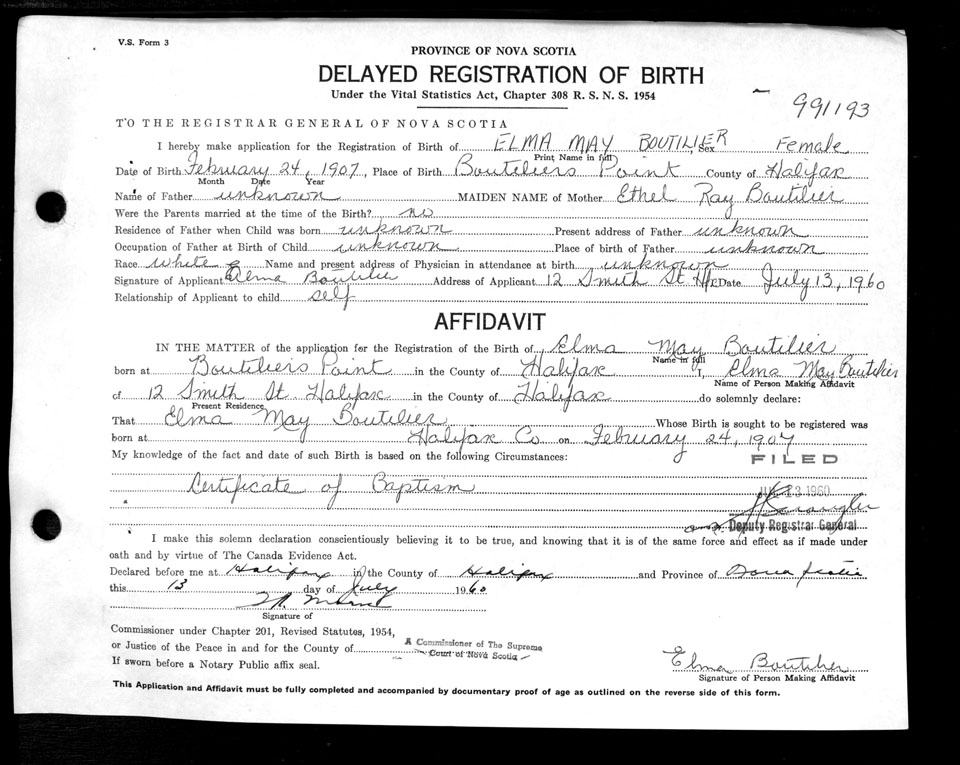 V.S. Form 3
PROVINCE OF NOVA SCOTIA
DELAYED REGISTRATION OF BIRTH
Under the Vital Statistics Act, Chapter 308 R. S. N. S. 1954
991193
TO THE REGISTRAR GENERAL OF NOVA SCOTIA
I hereby make application for the Registration of Birth of ELMA MAY BOUTILIER Sex Female
Print Name in full
Date of Birth February 24, 1907, Place of Birth Boutiliers Point County of Halifax
Month Date Year
Name of Father unknown MAIDEN NAME of Mother Ethel Ray Boutilier
Were the Parents married at the time of the Birth? no
Residence of Father when Child was born unknown Present address of Father unknown
Occupation of Father at Birth of Child unknown Place of birth of Father unknown
Race White Name and present address of Physician in attendance at birth unknown
Signature of Applicant Elma Boutilier Address of Applicant 12 Smith St Hfx Date July 13, 1960
Relationship of Applicant to child self
AFFIDAVIT
IN THE MATTER of the application for the Registration of the Birth of Elma May Boutilier
Name in full
born at Boutiliers Point in the County of Halifax I, Elma May Boutilier
Name of Person Making Affidavit
of 12 Smith St. Halifax in the County of Halifax do solemnly declare:
Present Residence
That Elma May Boutilier Whose Birth is sought to be registered was
born at Halifax Co. on February 24, 1907
My knowledge of the fact and date of such Birth is based on the following Circumstances:
FILED
Certificate of Baptism
13 1960
Deputy Registrar General
I make this solemn declaration conscientiously believing it to be true, and knowing that it is of the same force and effect as if made under
oath and by virtue of The Canada Evidence Act.
Declared before me at Halifax in the County of Halifax and Province of Nova Scotia
this 13 day of July 1960
Signature of
Commissioner under Chapter 201, Revised Statutes, 1954,
or Justice of the Peace in and for the County of
A Commissioner of The Supreme
Court of Nova Scotia
If sworn before a Notary Public affix seal.
Elma Boutilier
Signature of Person Making Affidavit
This Application and Affidavit must be fully completed and accompanied by documentary proof of age as outlined on the reverse side of this form.